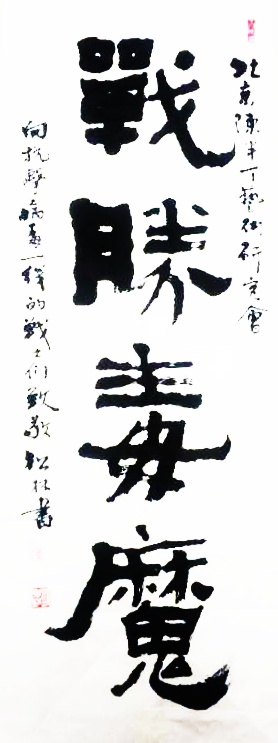 北京陳半丁藝術研究會
戰勝毒魔
向抗擊病毒一線的戰士们致敬 松林書